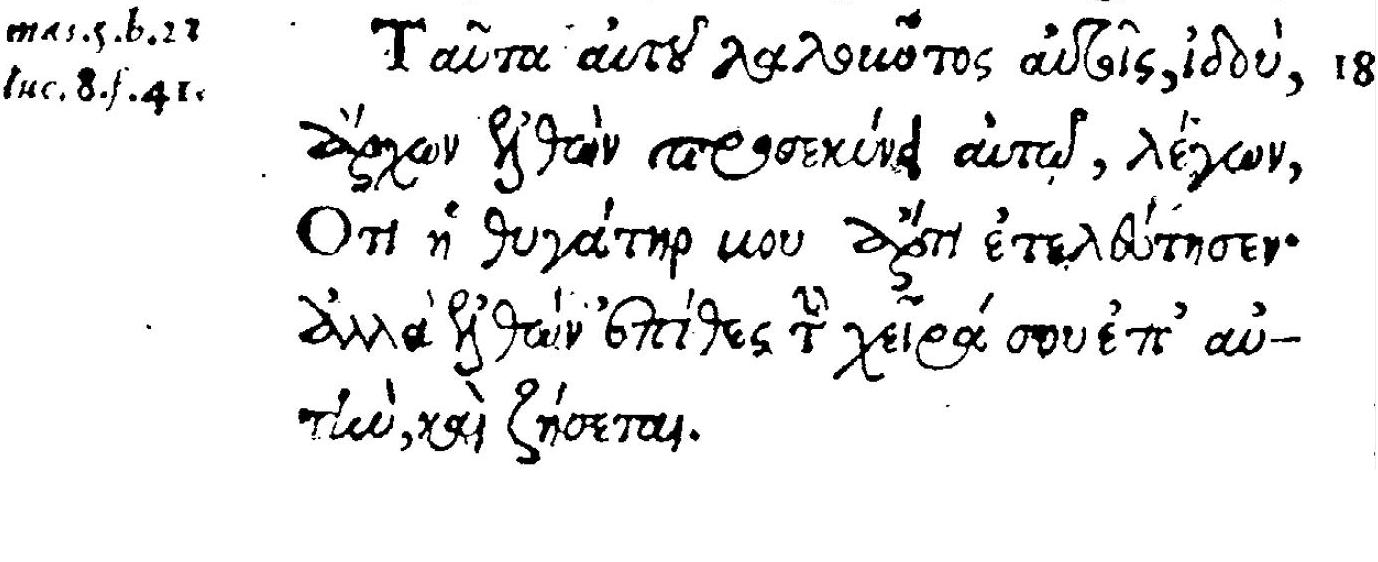 mar.5.b.22
Ταῦτα αὐτοῦ λαλοῦντος αὐτοῖς, ἰδού, 18
luc.8.f.41.
ἄρχων ἐλθὼν προσεκύνει αὐτῷ, λέγων,
Οτι ἡ θυγάτηρ μου ἄρτι ἐτελεύτησεν·
ἀλλὰ ἐλθὼν ἐπίθες τὴν χεῖρά σου ἐπ' αὐ-
τήν, καὶ ζήσεται.